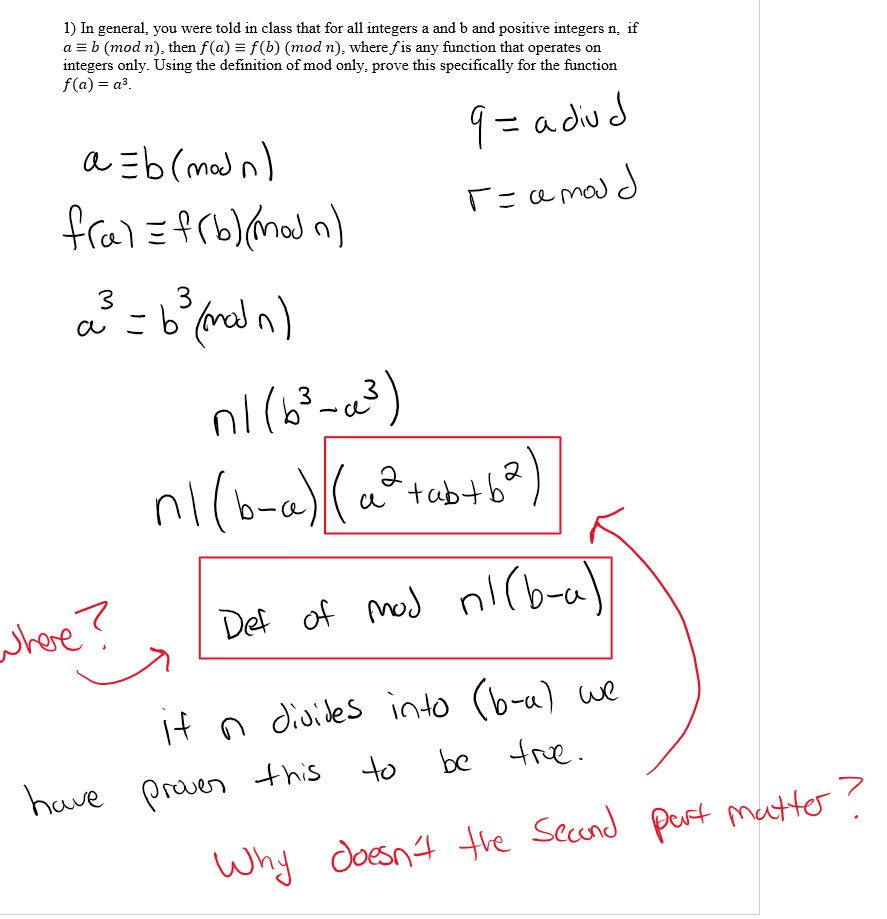 1) In general, you were told in class that for all integers a and b and positive integers n, if
a ≡ b (mod n), then f(a) ≡ f(b) (mod n), where f is any function that operates on
integers only. Using the definition of mod only, prove this specifically for the function
f(a) = a³.
q = a div d
a ≡ b (mod n)
r = a mod d
f(a) ≡ f(b) (mod n)
a³ = b³ (mod n)
n | (b³ - a³)
n | (b-a) (a² + ab + b²)
Def of mod n | (b-a)
where?
if n divides into (b-a) we
have proven this to be true.
Why doesn't the second part matter?